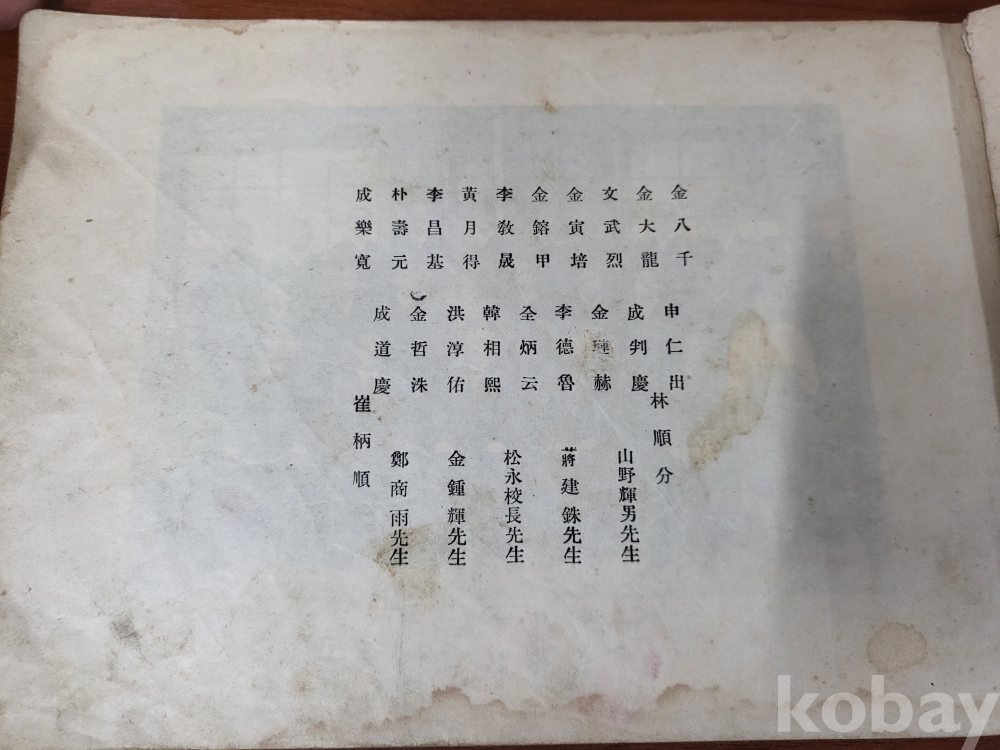 金八千
金大龍
文武烈
金寅培
金鎔甲
李敎晟
黃月得
李昌基
朴壽元
成樂寬
申仁出
成判慶
金 赫
李德魯
全炳云
韓相熙
洪淳佑
金哲洙
成道慶
林順分
山野輝男先生
蔣建銖先生
松永校長先生
金鍾輝先生
鄭商雨先生
崔柄順
kobay